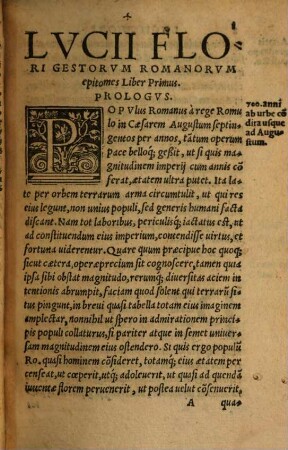 LVCII FLO
RI GESTORVM ROMANORVM
epitomes Liber Primus.
PROLOGVS.
POPVlus Romanus à rege Romu
lo in Cæsarem Augustum septin
gentos per annos, tãtum operum
pace belloq; geßit, ut si quis ma
gnitudinem imperij cum annis cõ
ferat, ætatem ultra putet. Ita la
te per orbem terrarum arma circumtulit, ut qui res
eius legunt, non unius populi, sed generis humani facta
discant. Nam tot laboribus, periculisq; iactatus est, ut
ad constituendum eius imperium, contendisse uirtus, et
fortuna uiderentur. Quare quum præcipue hoc quoq;
sicut cætera, operæprecium sit cognoscere, tamen quia
ipsa sibi obstat magnitudo, rerumq; diuersitas aciem in
tentionis abrumpit, faciam quod solent qui terrarũ si
tus pingunt, in breui quasi tabella totam eius imaginem
amplectar, nonnihil ut spero in admirationem princi-
pis populi collaturus, si pariter atque in semet uniuer-
sam magnitudinem eius ostendero. Si quis ergo populũ
Ro. quasi hominem cõsideret, totamq; eius ætatem per
censeat, ut cœperit, utq; adoleuerit, ut quasi ad quendã
iuuentæ florem peruenerit, ut postea uelut cõsenuerit,
A qua-
700. anni
ab urbe cõ
dita usque
ad Augu
stum.